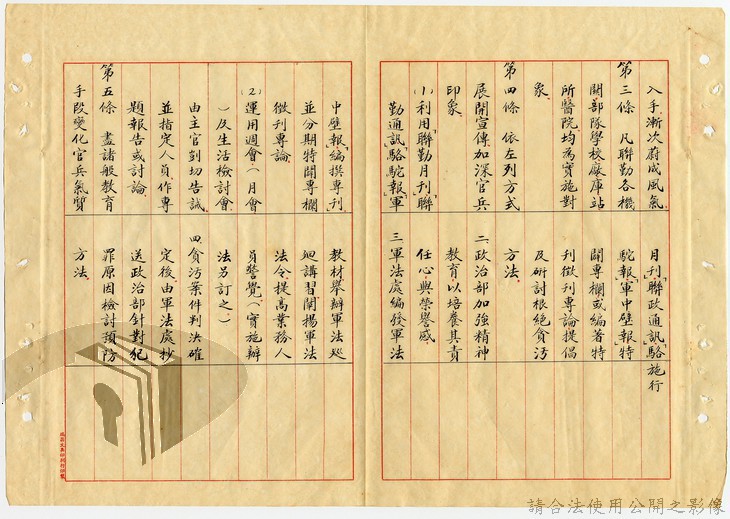 入手漸次蔚成風氣。
第三條　凡聯勤各機
關部隊學校廠庫站
所醫院均為實施對
象。
第四條　依左列方式
展開宣傳加深官兵
印象
(1)利用「聯勤月刊」「聯
勤通訊」「駱駝報」「軍
中壁報」編撰專刊
並分期特闢專欄
徵刊專論。
(2)運用週會(月會
)及生活檢討會
由主官剴切告誡
並指定人員作專
題報告或討論。
第五條　盡諸般教育
手段變化官兵氣質
月刊「聯政通訊」「駱
駝報」「軍中壁報」特
闢專欄或編著特
刊徵刊專論提倡
及研討根絕貪污
方法。
二、政治部加強精神
教育以培養其責
任心與榮譽感。
三、軍法處編發軍法
教材舉辦軍法巡
迴講習闡揚軍法
法令提高業務人
員警覺(實施辦
法另訂之)
四、貪污案件判決確
定後由軍法處抄
送政治部針對犯
罪原因檢討預防
方法。
施行
請合法使用公開之影像